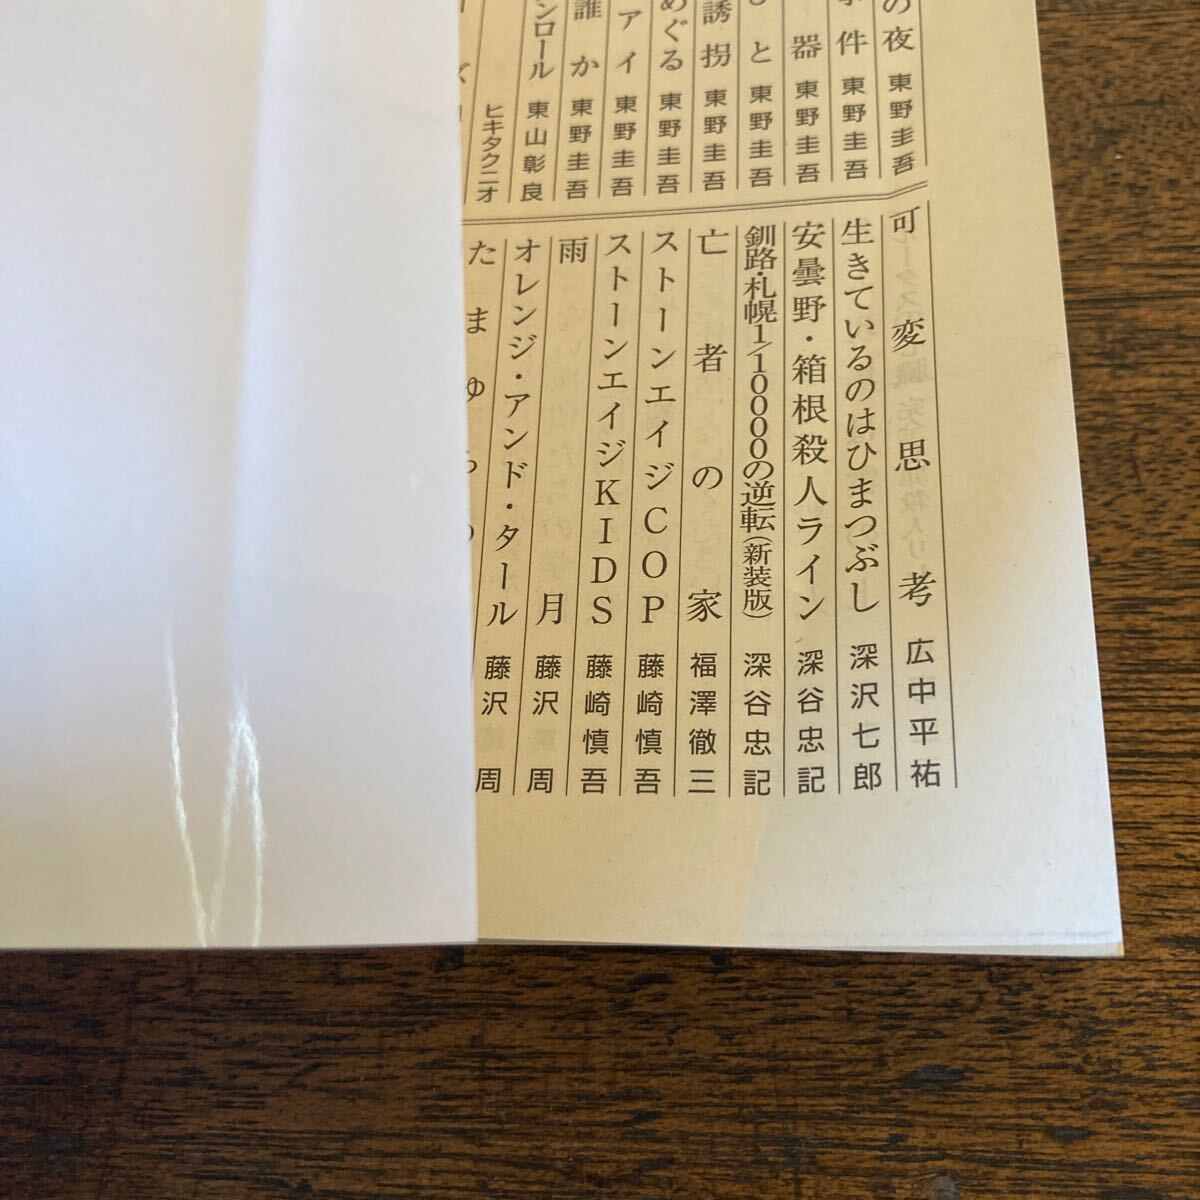 の夜 東野圭吾
事件 東野圭吾
器 東野圭吾
ひと 東野圭吾
誘拐 東野圭吾
めぐる 東野圭吾
アイ 東野圭吾
誰か 東野圭吾
ンロール 東山彰良
ヒキタクニオ
可変思考 広中平祐
生きているのはひまつぶし 深沢七郎
安曇野・箱根殺人ライン 深谷忠記
釧路・札幌1/10000の逆転(新装版) 深谷忠記
亡者の家 福澤徹三
ストーンエイジCOP 藤崎慎吾
ストーンエイジKIDS 藤崎慎吾
雨月 藤沢周
オレンジ・アンド・タール 藤沢周
たまゆらの